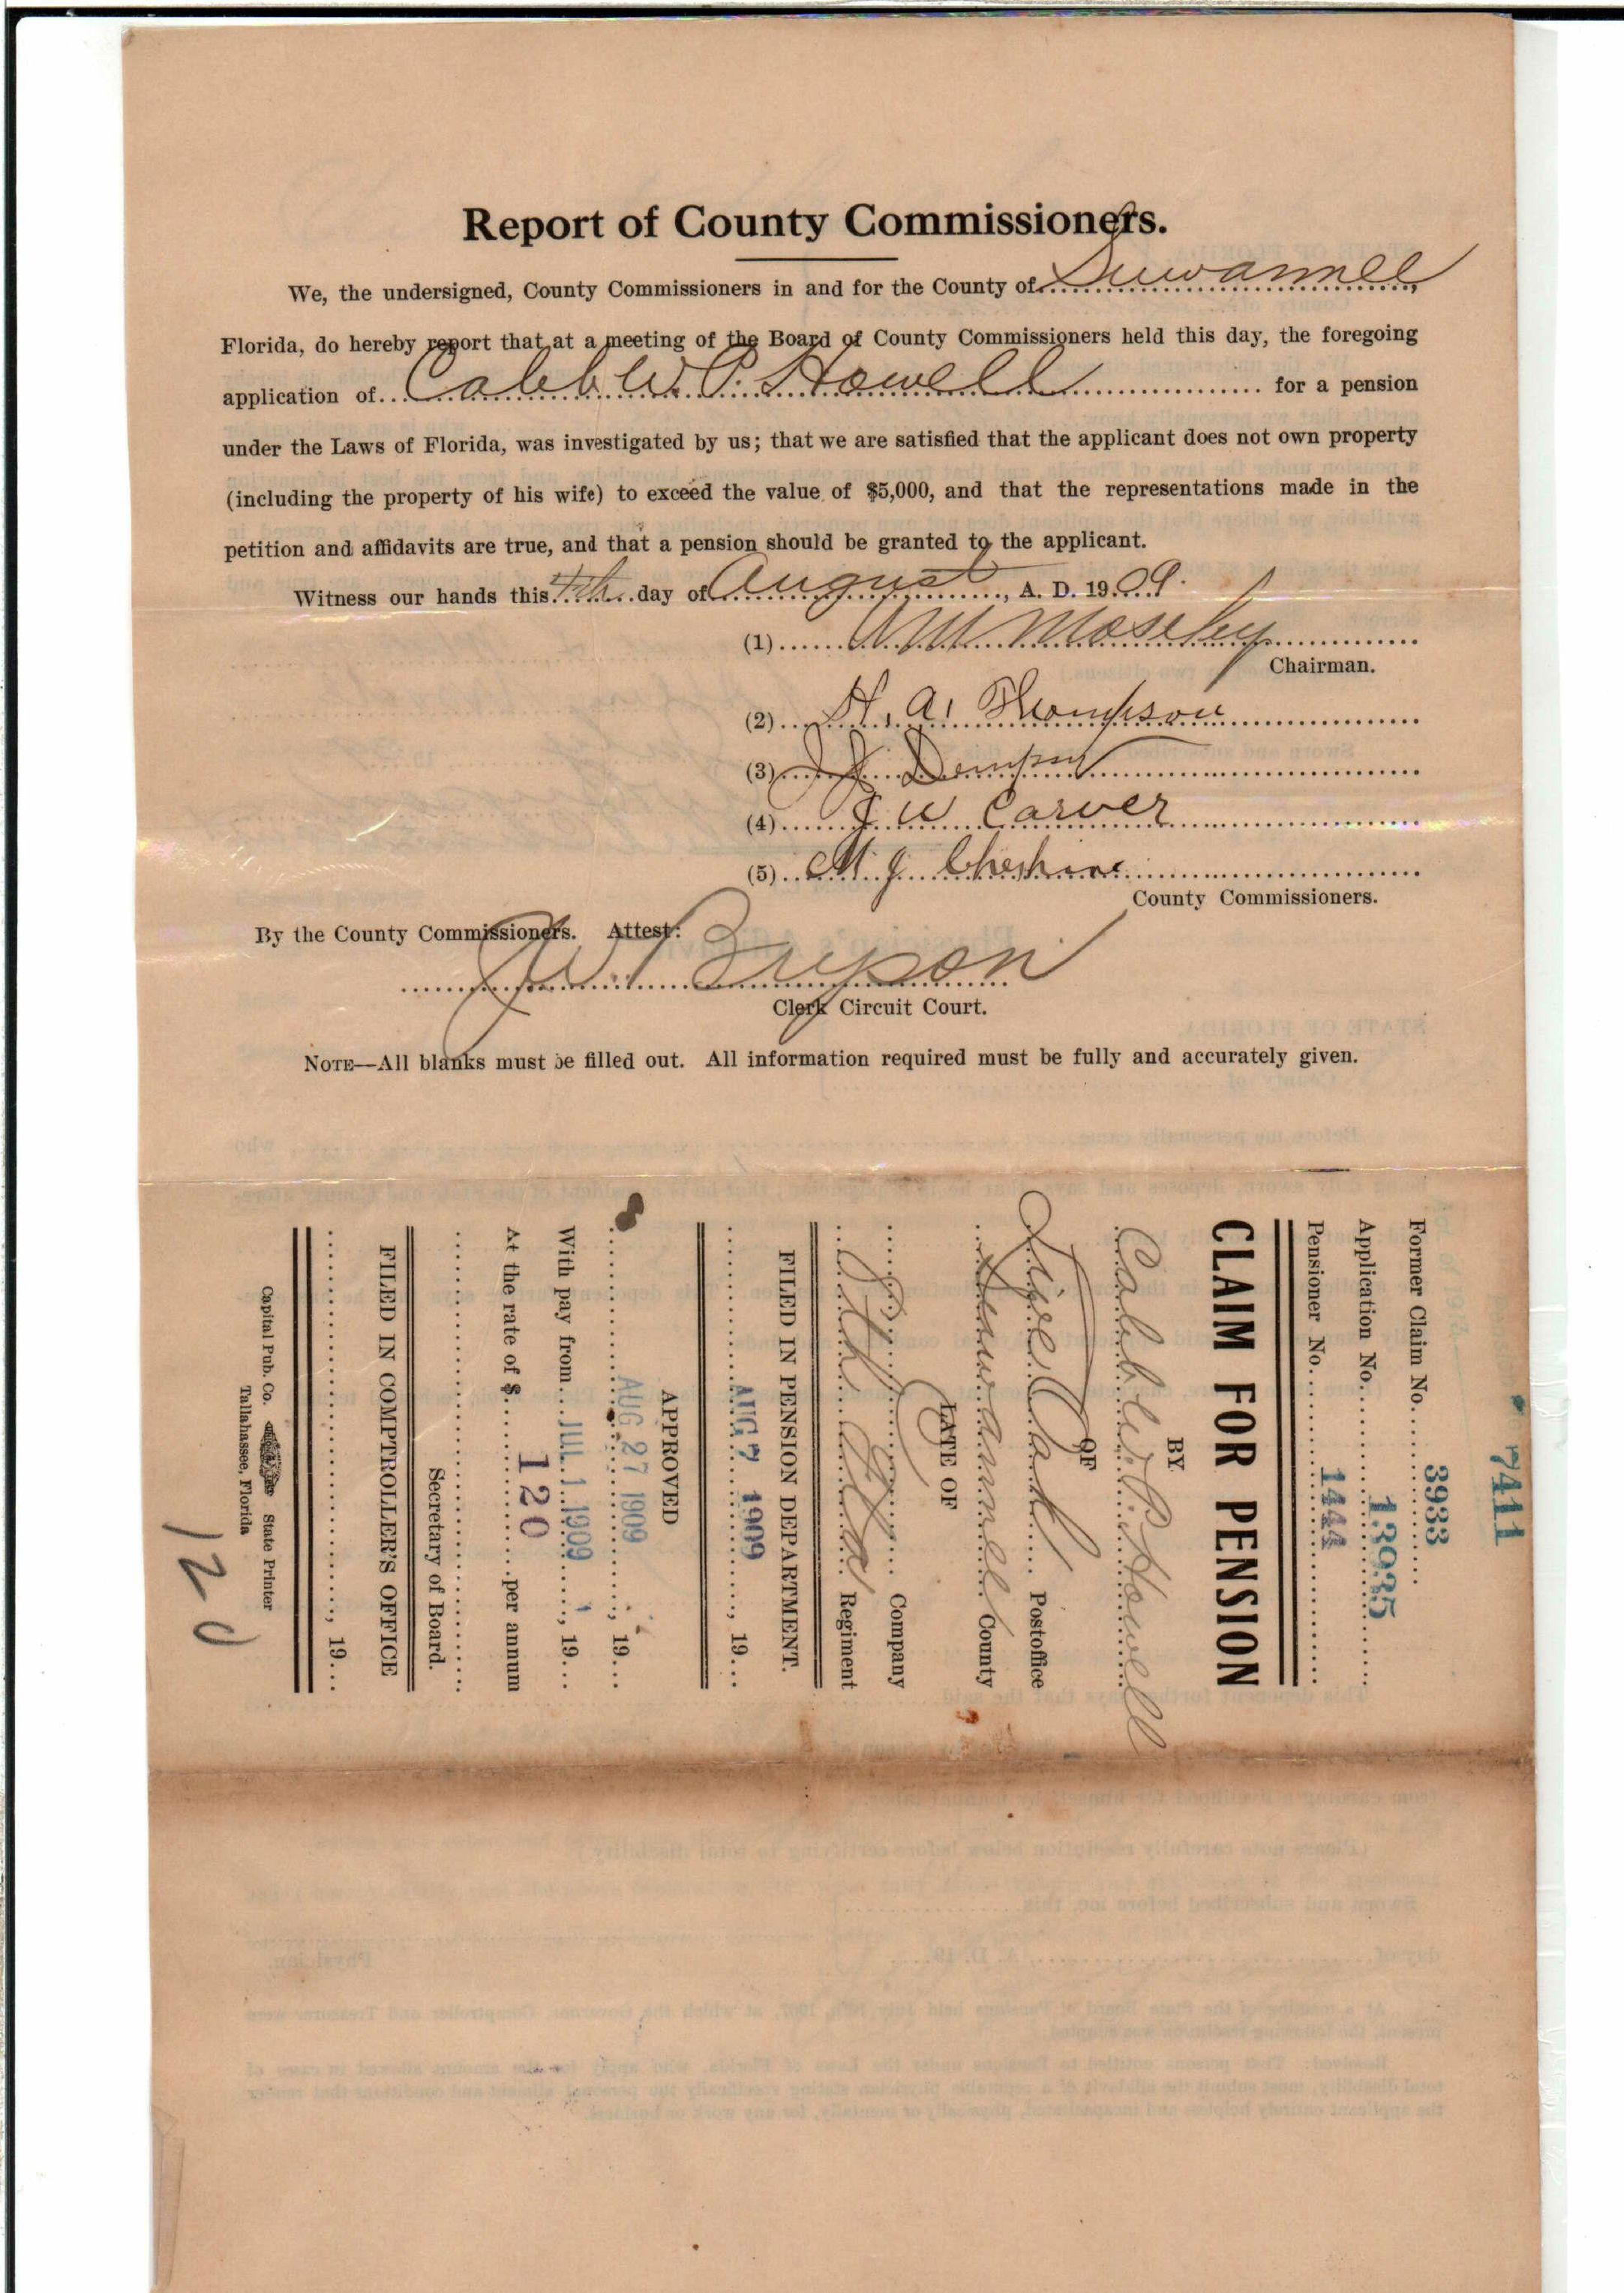 Report of County Commissioners.
We, the undersigned, County Commissioners in and for the County of Suwannee,
Florida, do hereby report that at a meeting of the Board of County Commissioners held this day, the foregoing
application of Caleb W. P. Howell for a pension
under the Laws of Florida, was investigated by us; that we are satisfied that the applicant does not own property
(including the property of his wife) to exceed the value of $5,000, and that the representations made in the
petition and affidavits are true, and that a pension should be granted to the applicant.
Witness our hands this 4th day of August, A. D. 1909.
(1) Moseley
Chairman.
(2) H. A. Thompson
(3) J J
(4) J W Carver
(5) M J Cheshire
County Commissioners.
By the County Commissioners. Attest:
J W Bryson
Clerk Circuit Court.
NOTE—All blanks must be filled out. All information required must be fully and accurately given.
7411
Former Claim No. 3933
Application No. 13935
Pensioner No. 1444
CLAIM FOR PENSION
BY
Caleb W. P. Howell
OF
Live Oak Postoffice
Suwannee County
LATE OF
Company
5th Regiment
FILED IN PENSION DEPARTMENT.
AUG 7 1909, 19
APPROVED
AUG 27 1909, 19
With pay from JUL 1 1909, 19
At the rate of $ 120 per annum
Secretary of Board.
FILED IN COMPTROLLER'S OFFICE
, 19
Capital Pub. Co. State Printer
Tallahassee, Florida